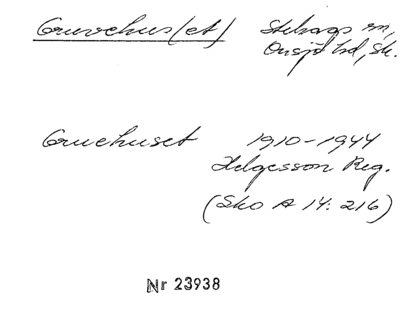 Gruvehus(et) Stehags sn,
Onsjö hd, Sk.
Gruehuset 1910-1944
Helgesson Reg.
(Sko A 14: 216)
Nr 23938